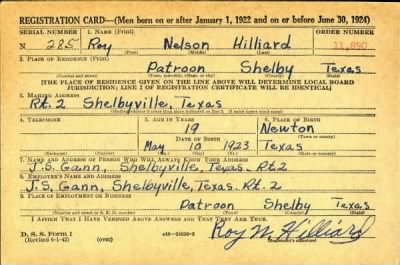 REGISTRATION CARD—(Men born on or after January 1, 1922 and on or before June 30, 1924)
SERIAL NUMBER 1. NAME (Print) ORDER NUMBER
N 285 Roy Nelson Hilliard 11,850
(First) (Middle) (Last)
2. PLACE OF RESIDENCE (Print)
Patroon Shelby Texas
(Number and street) (Town, township, village, or city) (County) (State)
[THE PLACE OF RESIDENCE GIVEN ON THE LINE ABOVE WILL DETERMINE LOCAL BOARD
JURISDICTION; LINE 2 OF REGISTRATION CERTIFICATE WILL BE IDENTICAL]
3. MAILING ADDRESS
Rt. 2 Shelbyville, Texas
4. TELEPHONE 5. AGE IN YEARS 6. PLACE OF BIRTH
19 Newton
DATE OF BIRTH
May 10 1923 Texas
7. NAME AND ADDRESS OF PERSON WHO WILL ALWAYS KNOW YOUR ADDRESS
J.S. Gann, Shelbyville, Texas. Rt. 2
8. EMPLOYER'S NAME AND ADDRESS
J.S. Gann, Shelbyville, Texas. Rt. 2
9. PLACE OF EMPLOYMENT OR BUSINESS
Patroon Shelby Texas
I AFFIRM THAT I HAVE VERIFIED ABOVE ANSWERS AND THAT THEY ARE TRUE.
D. S. S. Form 1
(Revised 6-1-42) (over)
Roy N. Hilliard